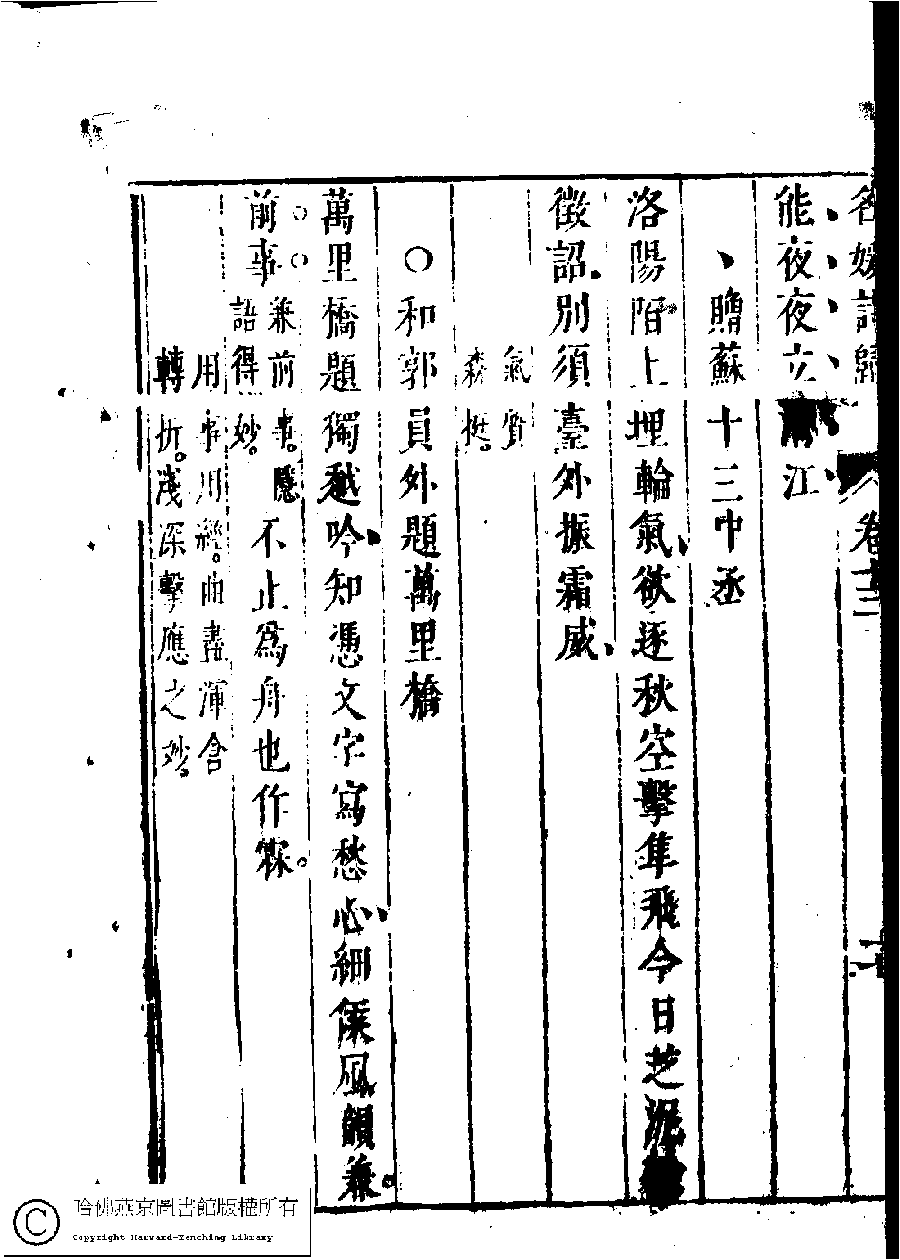 名媛詩歸 卷十三
能夜夜立江
贈蘇十三中丞
洛陽陌上埋輪氣、欲逐秋空擊隼飛今日芝泥
徵詔、別須臺外振霜威、
氣質
森挺。
○和郭員外題萬里橋
萬里橋題獨越吟、知憑文字寫愁心、細侯風韻兼。
前事
兼前事。隱
語得妙。
不止爲舟也作霖。
用事用經。曲盡渾含
轉折。淺深擊應之妙。
哈佛燕京圖書館版權所有
Copyright Harvard-Yenching Library